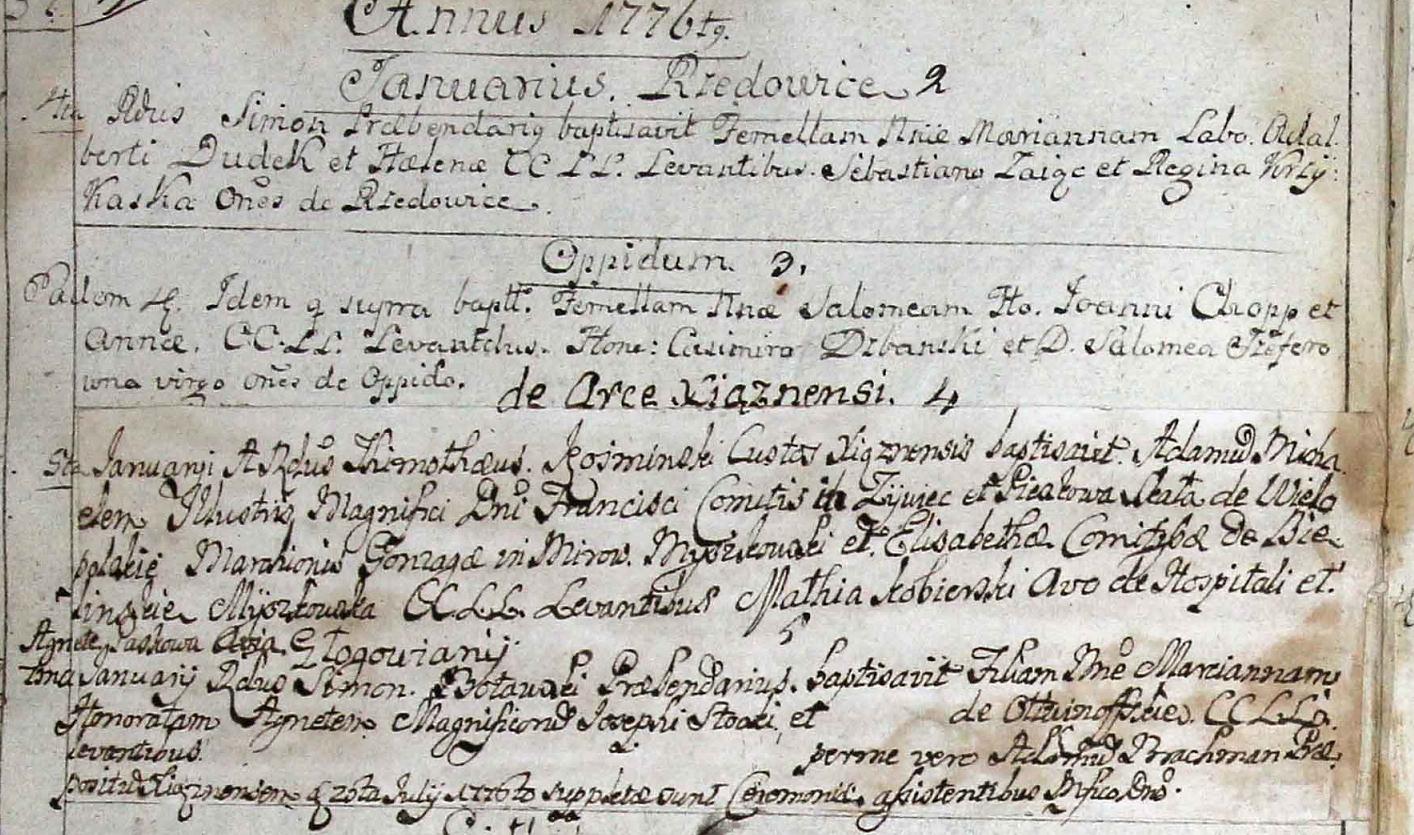 Annus 1776tg.
Januarius. Rzedowice 2
4ta Rdus Simon Præbendarig baptisavit Femellam Nnie Mariannam Labo. Adal.
berti Dudek et Hælenæ CC LL. Levantibus. Sebastiano Zaiqc et Regina Krzy:
Kaska Ones de Rzedowice.
Oppidum. 3.
Eadem Idem q supra baptt. Femellam Nnæ Salomeam Ho. Joanni Chopp et
Annæ. CC.LL. Hone: Casimiro Dzbanski et D. Salomea
wna virgo ones de Oppido.
de Arce Xiąznensi. 4
5ta Januarij A Rdus Thimothæus. Kosminski Custos Xiąznensis baptisavit. Adamu Micha
elem Illustris Magnifici Dni Francisci Comitis in Zijwiec et Pieskowa Skała de Wielo
polskie Marchionis Gonzagæ in Mirow. Myszkowski et Elisabethæ Comitssæ de Bie
linskie Mijszkowska CC LL. Levantibus Mathia Kobierski Avo de Hospitali et
Agnete Paskowa Avia. Głogowianij 5
tma Januarij Rdus Simon. Præbendarius. baptisavit Filiam Nne Mariannam
Honoratam Agnetem Magnificoru Josephi Stocki et de CC LL.
levantibus. perme vero Adamu Brachman Præ
positu Xiąznensem q 20ta Julij 1776to suppletæ sunt Ceremoniæ assistentibus